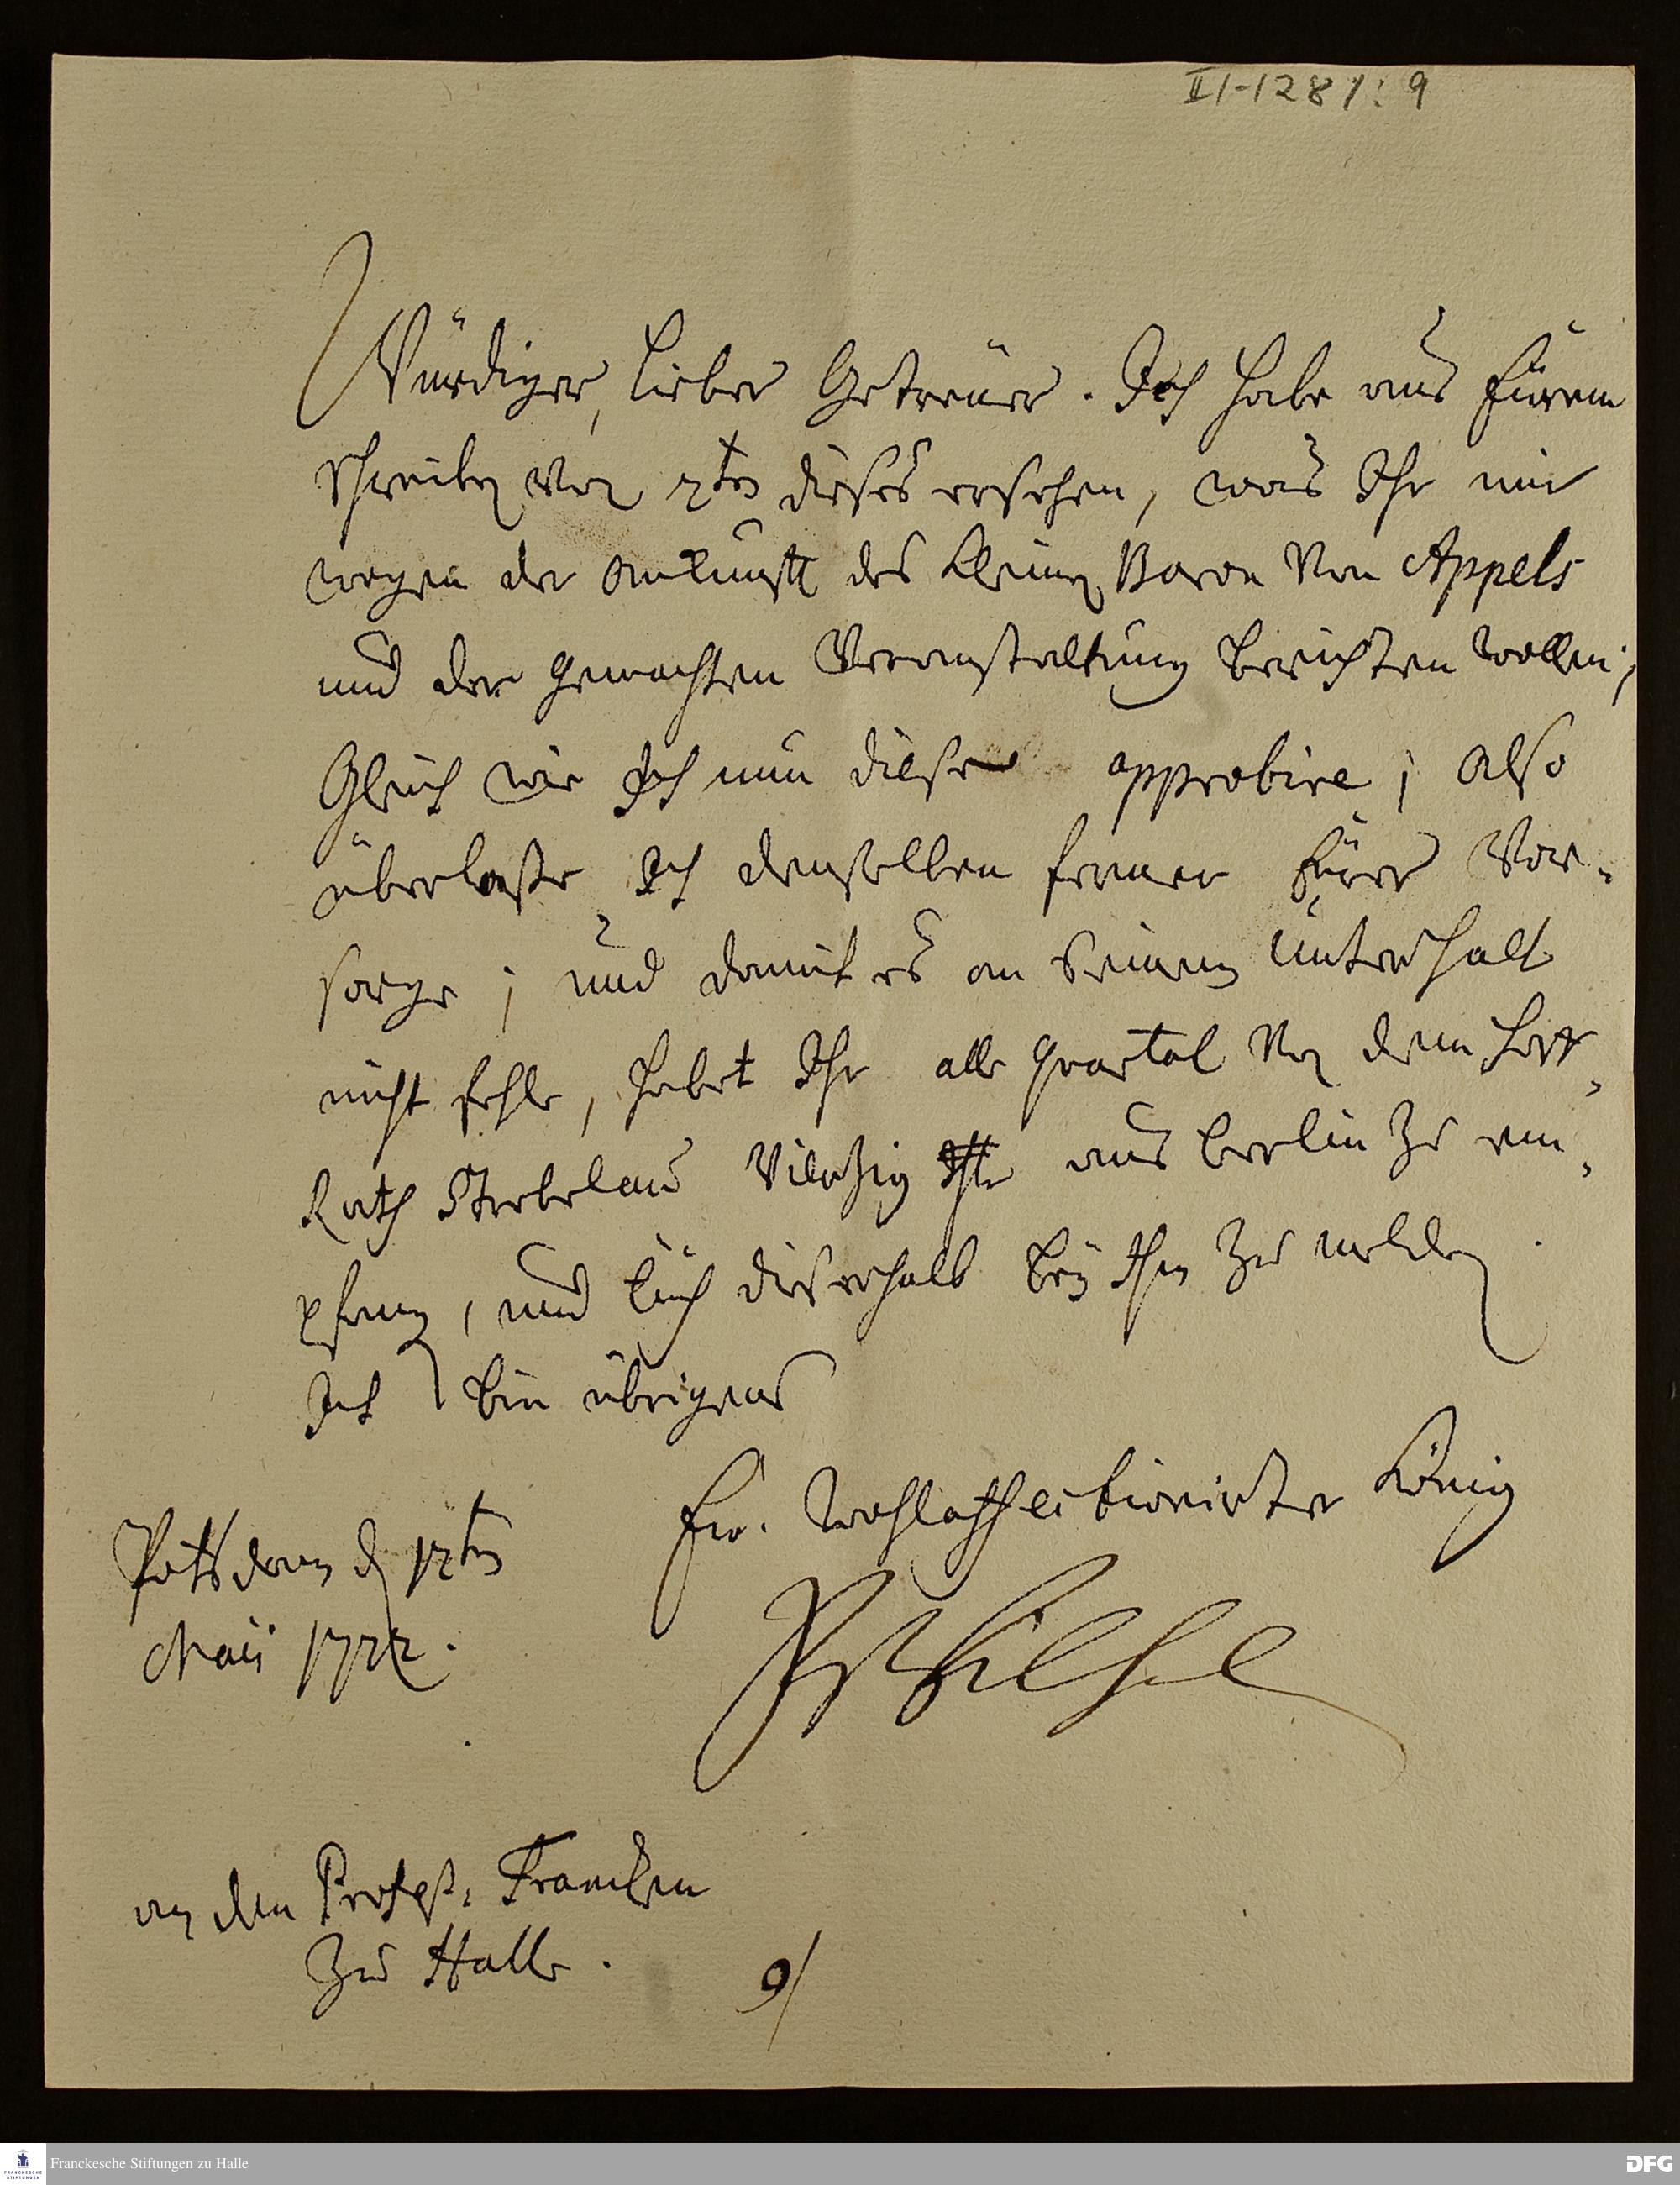 II-1-28 1: 9
Würdiger, Lieber Getreüer. Ich habe aus Eürem
schreiben vom 7ten dieses ersehen, was Ihr mir
wegen der ankunfft des kleinen Baron Von Appels
und der gemachten Veranstaltung berichten wollen;
Gleich wie Ich nun diese approbire; also
überlaße Ich denselben ferner Eürer Vor-
sorge; und damit es an Seinem Unterhalt
nicht fehle, habet Ihr alle quartal Von dem Hoff-
Rath Strebelau Viertzig aus berlin zu em-
pfangen, und Eüch dieserhalb bey Ihm zu melden
Ich bin übrigens
Ew. Wohlaffectionirter König
Potsdam d 12ten
Maii 1722.
Fr Wilhelm
an den Profeß. Francken
zu Halle.
9/
Franckesche Stiftungen zu Halle
FRANCKESCHE
STIFTUNGEN
DFG